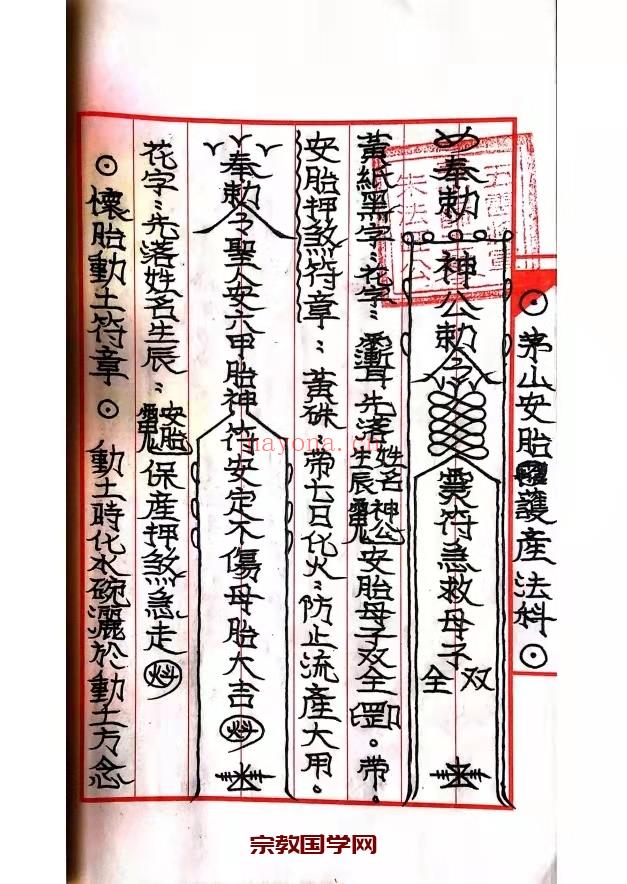 ⊙茅山安胎護產法科⊙
奉勅 神公勅令 靈符急救母子双全
黃紙黑字:花字: 先落姓名生辰 神公 安胎母子双全 罡印。带。
安胎押煞符章:黃硃:带七日化火:防止流產大用。
奉勅令聖人安六甲胎神符安定不傷母胎大吉
花字:先落姓名生辰: 安胎 保產押煞急走
⊙懷胎動土符章⊙ 動土時化水碗灑於動土方念
mayona.cn
宗教国学网